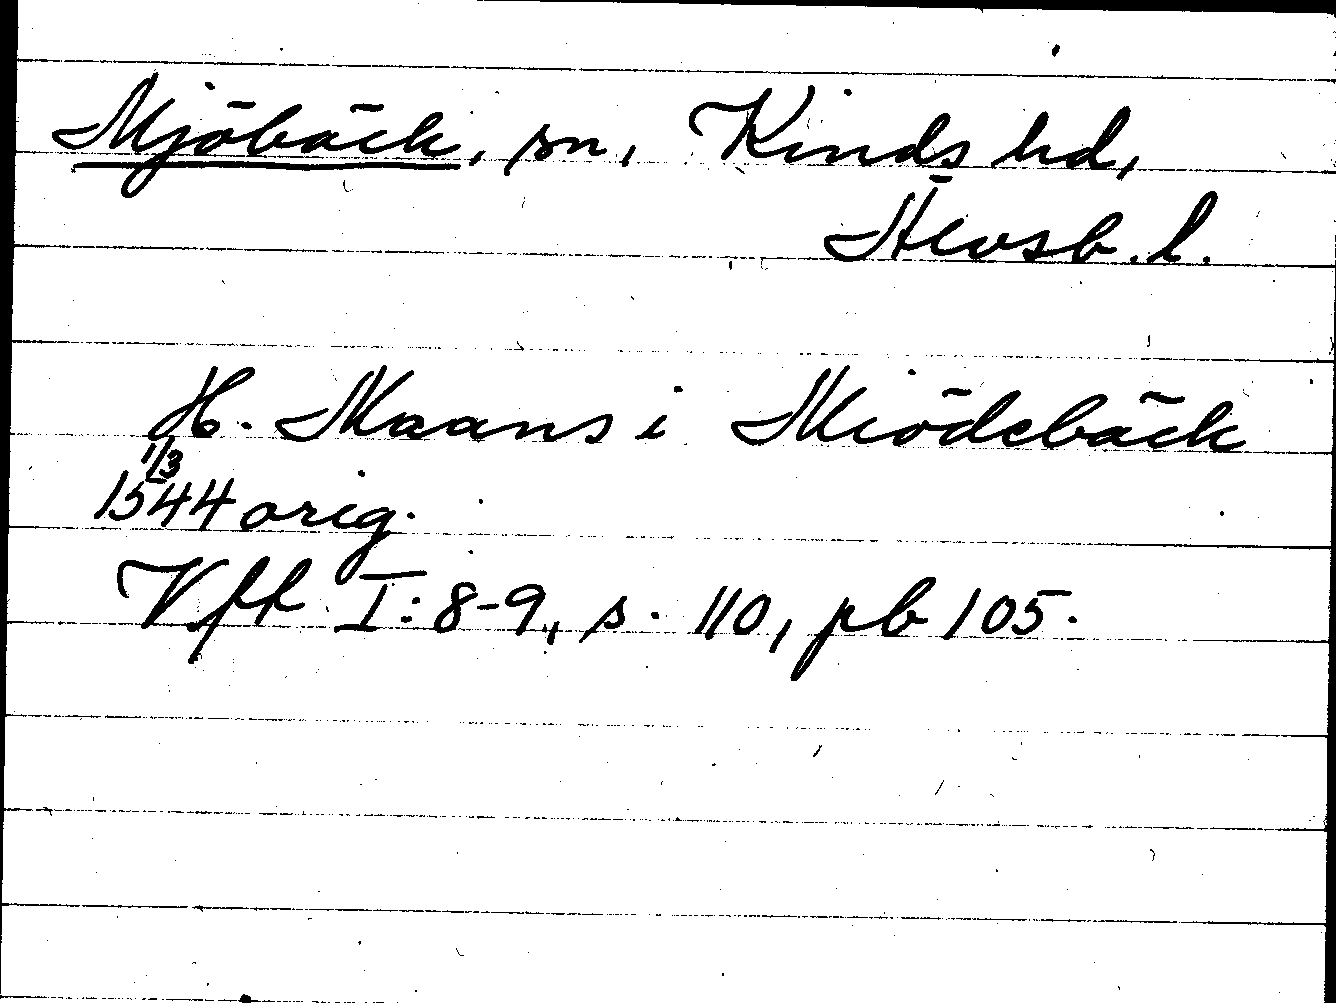 Mjöbäck, sn, Kinds hd,
Älvsb. l.
H. Maans i Miödebäck
1/3
1544 orig.
Vff I: 8-9, s. 110, pb 105.